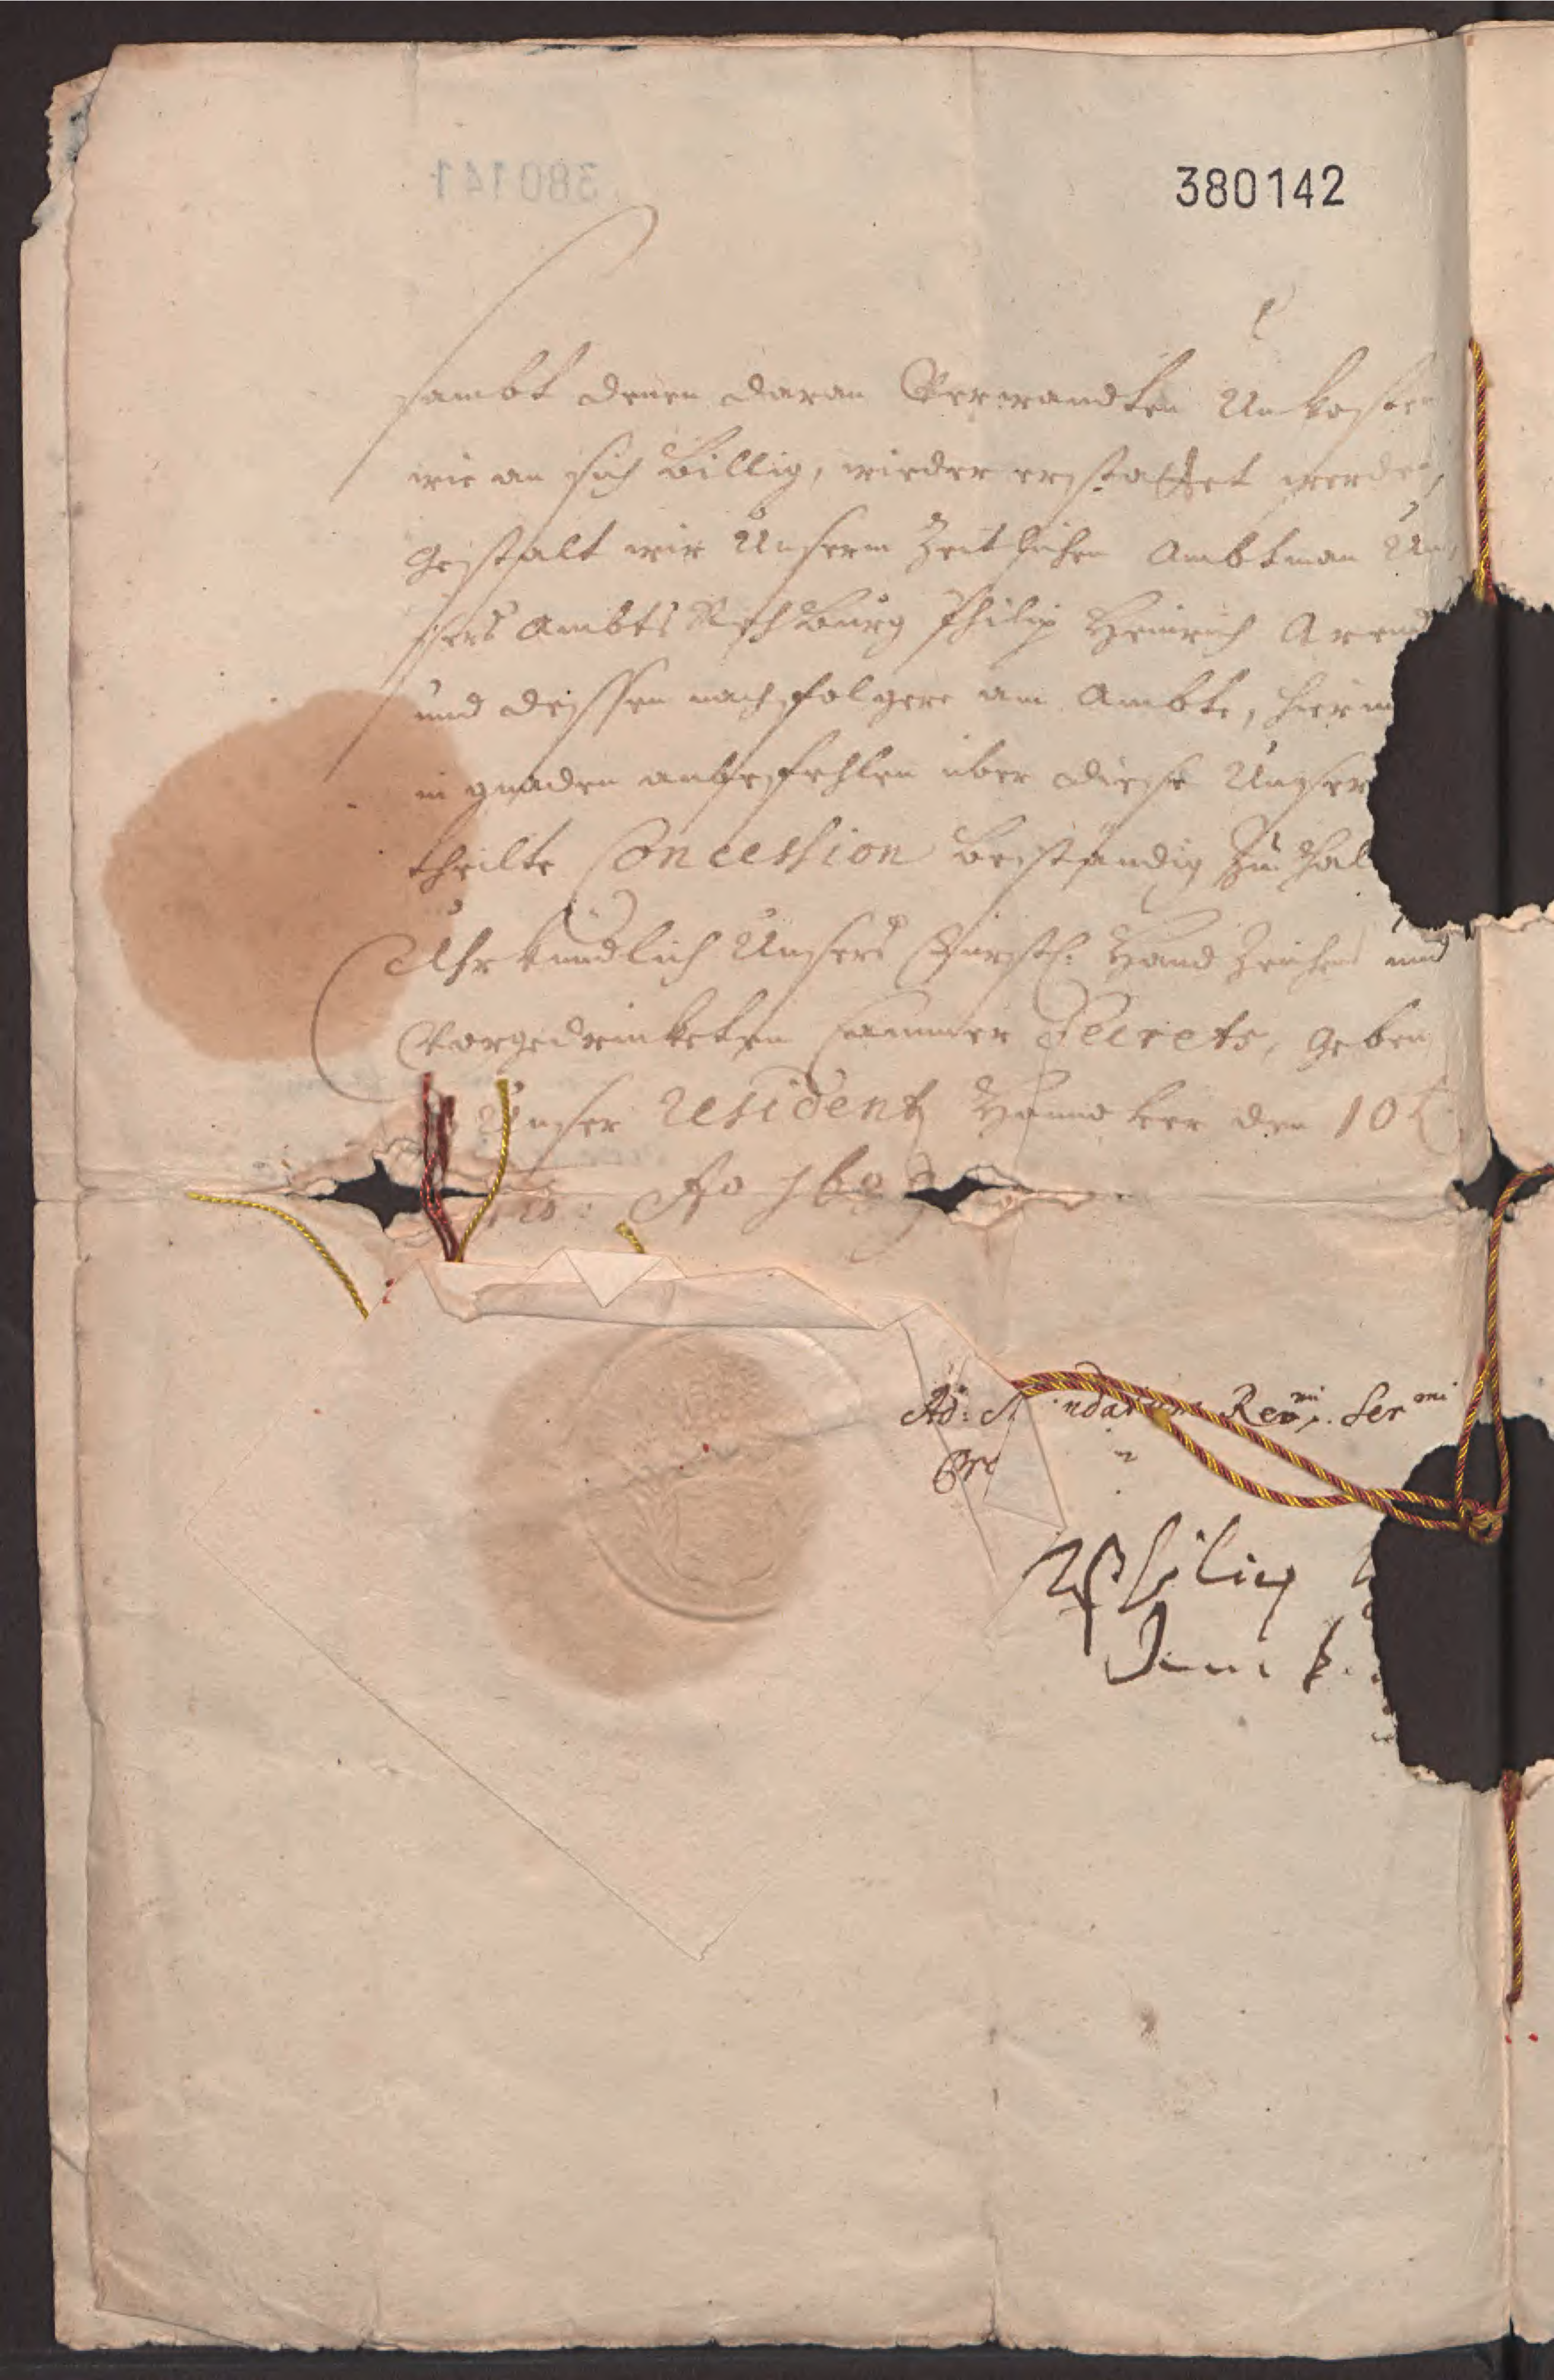 380142
sambt denen daran Verwandten Unkosten
wie an sich billig, wieder erstattet werden,
gestalt wir Unserm Zeitlichen Ambtman Un
sers Ambts Rehburg Philip Heinrich Arend
und dessen nachfolgere am Ambte, hiermi
in gnaden anbefehlen über diese Unser
theilte Concession beständig zu hal
Uhrkundlich Unsers Fürstl: Hand Zeichens und
Vorgedrucketen Cammer Secrets, geben
Unser Residentz Hannover den 10t
Ao 16
Ad: M ndatum Revmi. Sermi
Philip